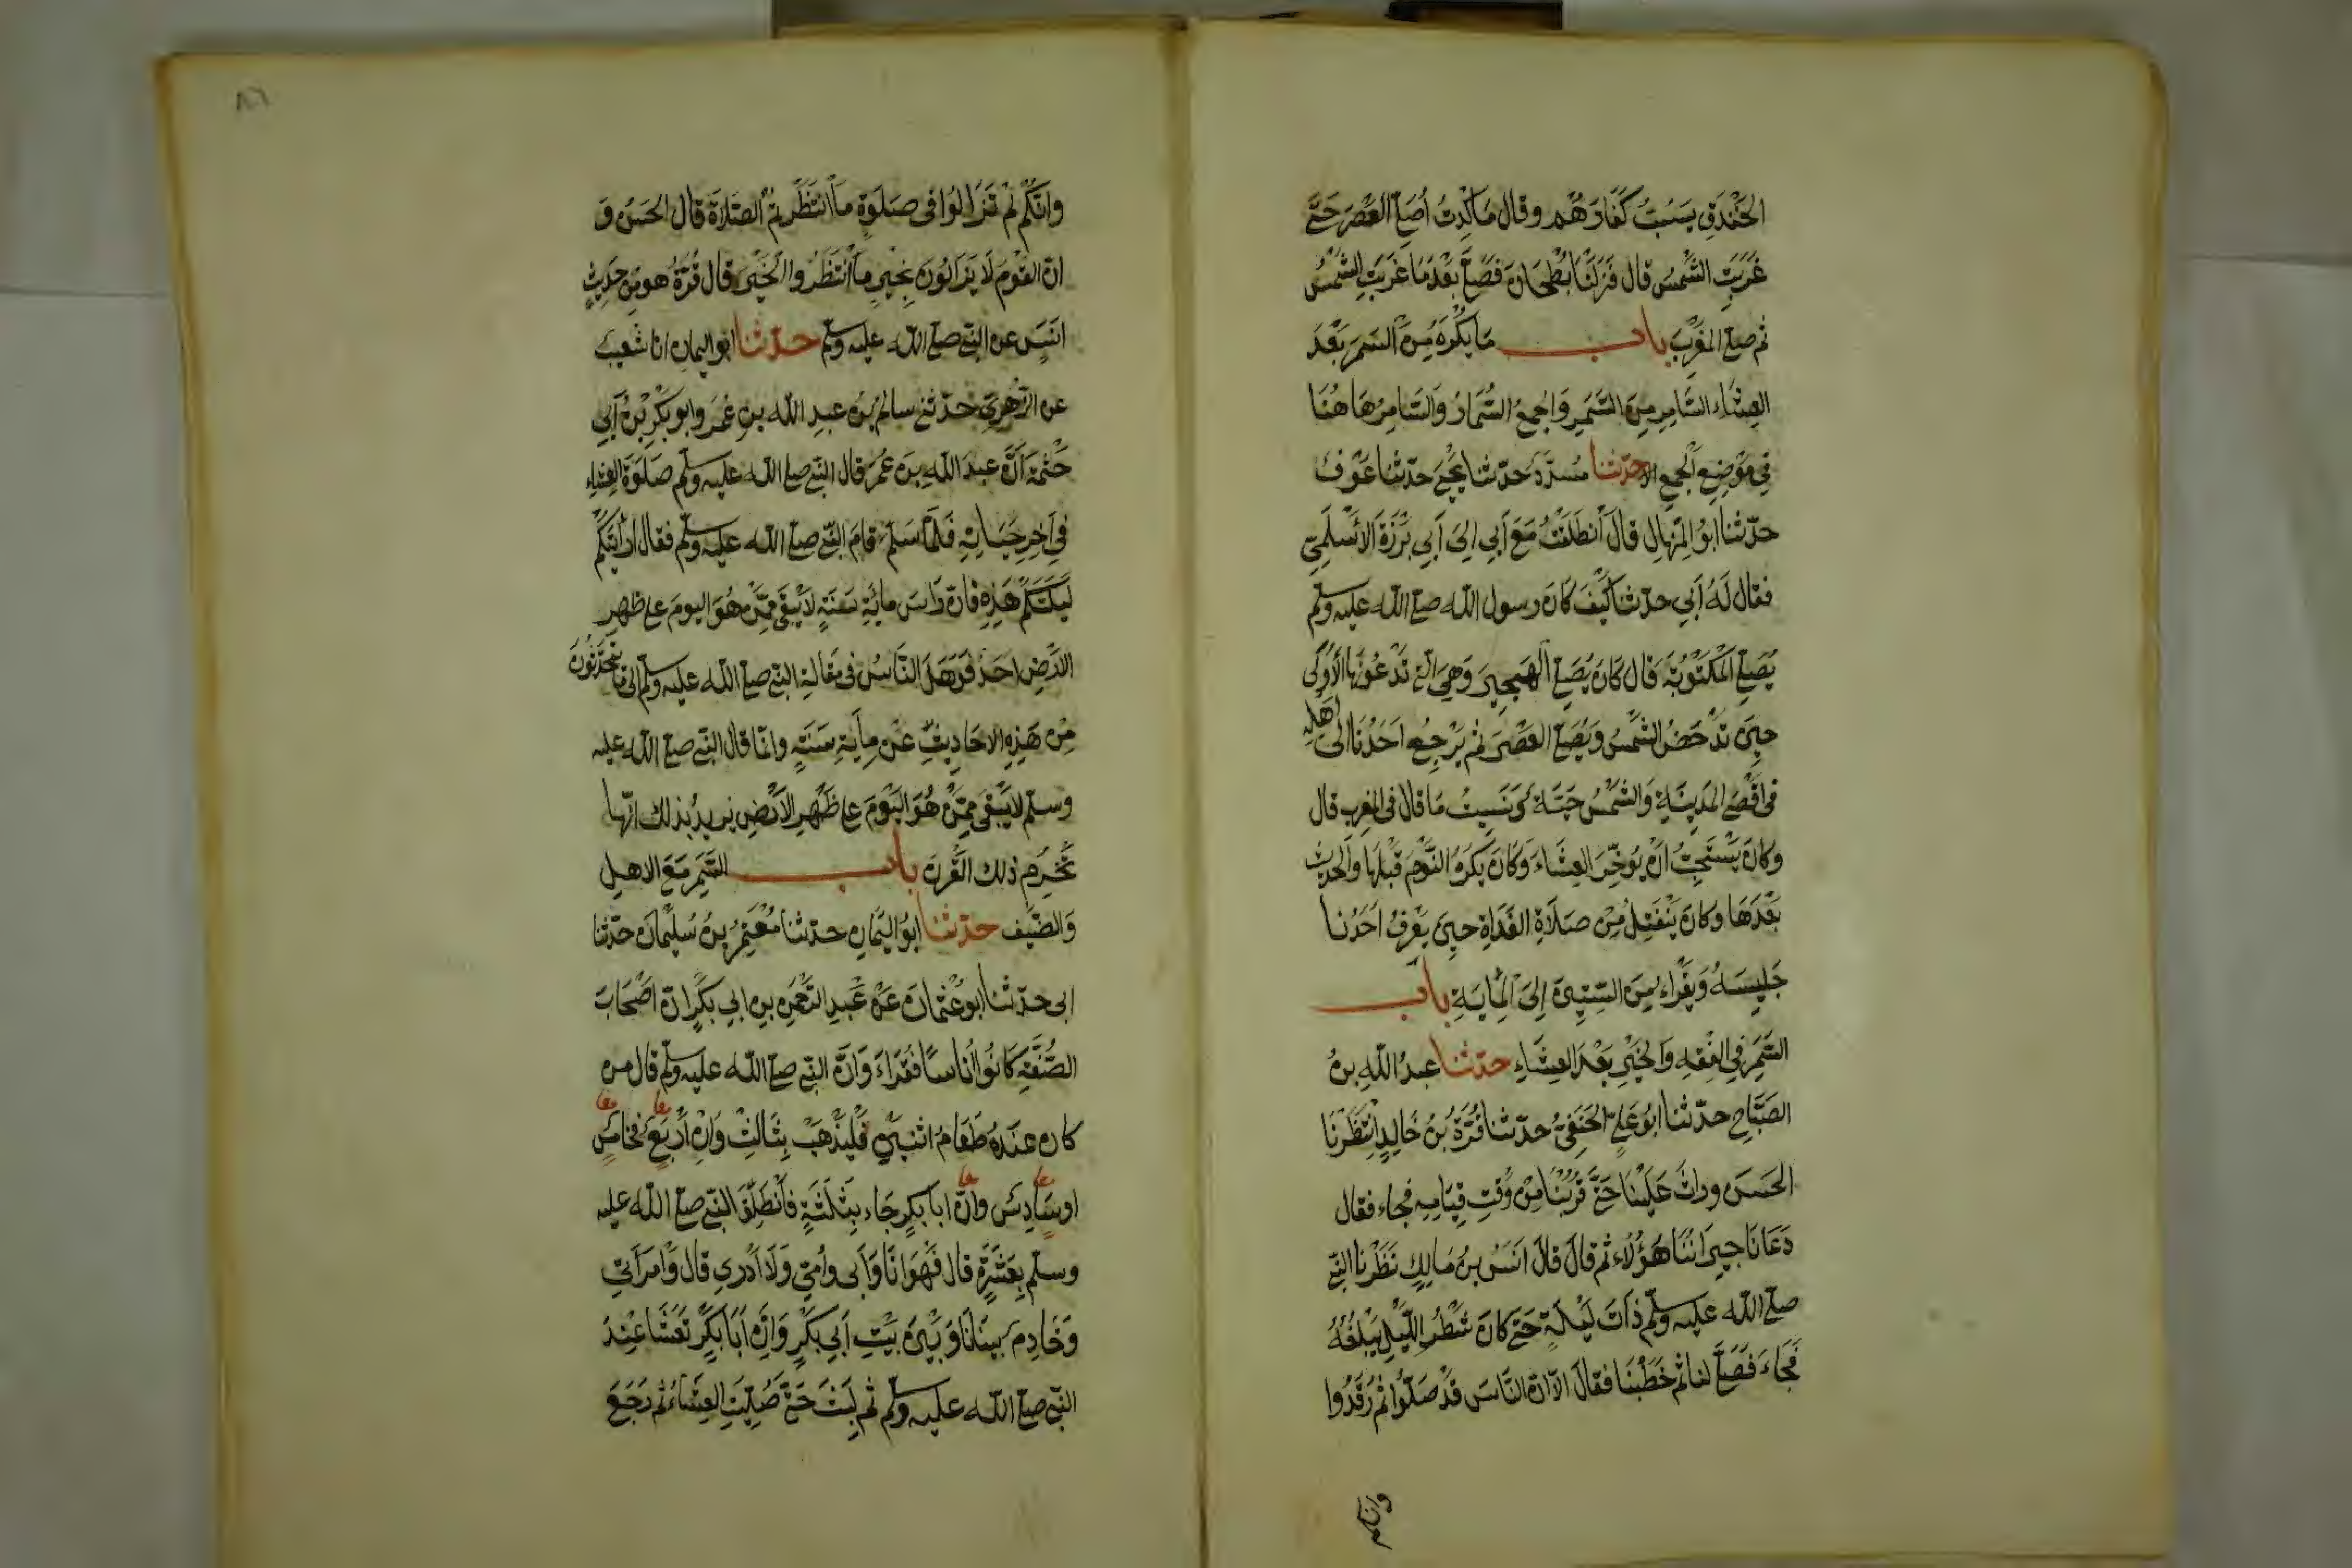 الخَنْدَقِ يَسُبُّ كُفَّارَهُم وقال مَا كِدتُ أُصَلّى العَصْرَ حَتَّى
غَرَبَتِ الشَّمْسُ قال فَنَزَلْنَا بُطْحَانَ فَصَلَّى بَعْدَمَا غَرَبَتِ الشَّمْسُ
ثم صلى المغْرِبَ باب مَا يُكْرَهُ مِنَ السَّمَرِ بَعْدَ
العِشَاءِ السَّامِرِ مِنَ السَّمَرِ وَالجَمعُ السُّمَّارُ وَالسَّامِرُ هَاهُنَا
فِي مَوْضِعِ الجَمعِ حدّثنا مُسَدَّدٌ حَدّثنا يَحْيَى حَدّثنا عَوْفٌ
حَدّثنا ابُو المِنْهَالِ قَالَ انْطَلَقْتُ مَعَ أَبِي الِى أَبِي بَرْزَةَ الأَسْلَمِيّ
فقال لَهُ أَبِي حدّثنا كَيْفَ كَانَ رسول الله صلى الله عليه وسلم
يُصَلّى المَكْتُوبَةَ قال كَانَ يُصَلّى الهَجِيرَ وَهِيَ الّتى تَدْعُونَهَا الأُولَى
حِينَ تَدْحَضُ الشَّمْسُ وَيُصَلّى العَصْرَ ثم يَرْجِعُ احَدُنَا الى أَهْلِهِ
فى اقْصَى المَدِينَةِ وَالشَّمْسُ حَيَّةٌ وَنَسِيتُ مَا قال فى المغرب قال
وكانَ يَسْتَحِبُّ انْ يُوَخِّرَ العِشَاءَ وَكَانَ يَكْرَهُ النَّوْمَ قَبْلَهَا وَالحديث
بَعْدَهَا وكانَ يَنْفَتِلُ مِنْ صَلَاةِ الغَدَاةِ حِينَ يَعْرِفُ احَدُنَا
جَلِيسَهُ وَيَقْرَاءُ مِنَ السِّتِينَ إِلَى المِايَةِ باب
السَّمَرِ فِي الفِقْهِ وَالخَيْرِ بَعْدَ العِشَاءِ حدّثنا عبدُ اللهِ بنُ
الصَبَّاحِ حدّثنا ابُو عَلِيّ الحَنَفِيُّ حدّثنا قُرَّةُ بنُ خَالِدٍ انْتَظَرْنَا
الحَسَنَ وراثَ عَلَيْنَا حَتَّى قَرُبْنَا مِنْ وَقْتِ قِيَامِهِ فجاء فقال
دَعَانَا جِيرَانُنَا هَؤُلَاءِ ثم قالَ قالَ انَسُ بنُ مَالِكٍ نَظَرْنَا النبّى
صلى الله عليه وسلم ذَاتَ لَيْلَةٍ حَتّى كَانَ شَطْرُ اللّيْلِ يَبْلُغُهُ
فجَاءَ فَصَلَّى لنا ثم خَطَبَنَا فقالَ الا انّ النَّاسَ قَدْ صَلّوا ثم رَقَدُوا
وانكم
وانّكُمْ لَمْ تَزَالُوا فى صَلَوةٍ مَا انْتَظَرْتُمُ الصَّلاَةَ قال الحَسَنُ وَ
انّ القَوْمَ لَا يَزَالُونَ بِخَيرٍ مَا انْتَظَرُوا الخَيْرَ قال قُرَّةُ هو مِن حَدِيثِ
انَسٍ عن النبّى صلى الله عليه وسلم حدّثنا ابو اليمانِ انا شُعَيبٌ
عن الزُّهْرِيِّ حَدّثنى سالمُ بنُ عبدِ الله بنِ عُمَرَ وابو بَكْرِ بْنُ أَبِي
حَثْمَةَ أَنَّ عبدَ اللهِ بنَ عُمَرَ قال النبّى صلى الله عليه وسلم صَلَوةَ العِشَاءِ
فى آخِرِ حَيَاتِهِ فَلَمَّا سَلَّمَ قَامَ النبّى صلى الله عليه وسلم فقال ارَأَيْتَكُمْ
لَيْلَتَكُمْ هَذِهِ فانّ رَاسَ مائةِ سَنَةٍ لاَ يَبْقَى مِمَّنْ هُوَ اليومَ على ظهرِ
الارْضِ احَدٌ فَوَهَلَ النَّاسُ فى مَقَالةِ النبّى صلى الله عليه وسلم الى مَا يَتَحَدّثُونَ
مِنْ هَذِهِ الاحَادِيثِ عَنْ مِايَةِ سَنَةٍ وانّما قال النبّى صلى الله عليه
وسلم لا يَبْقَى مِمَّنْ هُوَ اليَوْمَ على ظَهْرِ الاَرْضِ يريدُ بذلك انّها
تَخْرِمُ ذلك القَرْنَ باب السَّمَرِ مَعَ الاهلِ
وَالضَّيْف حدّثنا ابُو اليَمَانِ حدثنا مُعْتَمِرُ بنُ سُلَيْمَانَ حدّثنا
ابى حدّثنا ابو عُثمانَ عَنْ عَبدِ الرَّحْمَنِ بنِ ابي بَكْرٍ انّ اصْحَابَ
الصُّفَّةِ كَانُوا أُنَاسًا فُقَرَاءَ وَانَّ النبّى صلى الله عليه وسلم قال من
كان عنْدَهُ طَعَامُ اثنَيْنِ فَلْيَذْهَبْ بِثَالِثٍ وَانْ أَرْبَعٍ فَخَامِسٍ
او سَادِسٍ وانّ ابَا بَكرٍ جَاءَ بِثَلَثَةٍ فَانْطَلَقَ النبّى صلى الله عليه
وسلم بِعَشَرَةٍ قال فَهْوَ انَا وَأَبِى وأُمّى وَلَا أَدْرِى قال وَامرَأَتِى
وَخَادِمٌ بيننَا وَبَيْنَ بَيْتِ أَبِي بَكْرٍ وَانّ أَبَا بَكْرٍ تَعَشَّا عِنْدَ
النبّى صلى الله عليه وسلم ثم لَبِثَ حَتَّى صُلِّيَتِ العِشَاءُ ثم رَجَعَ